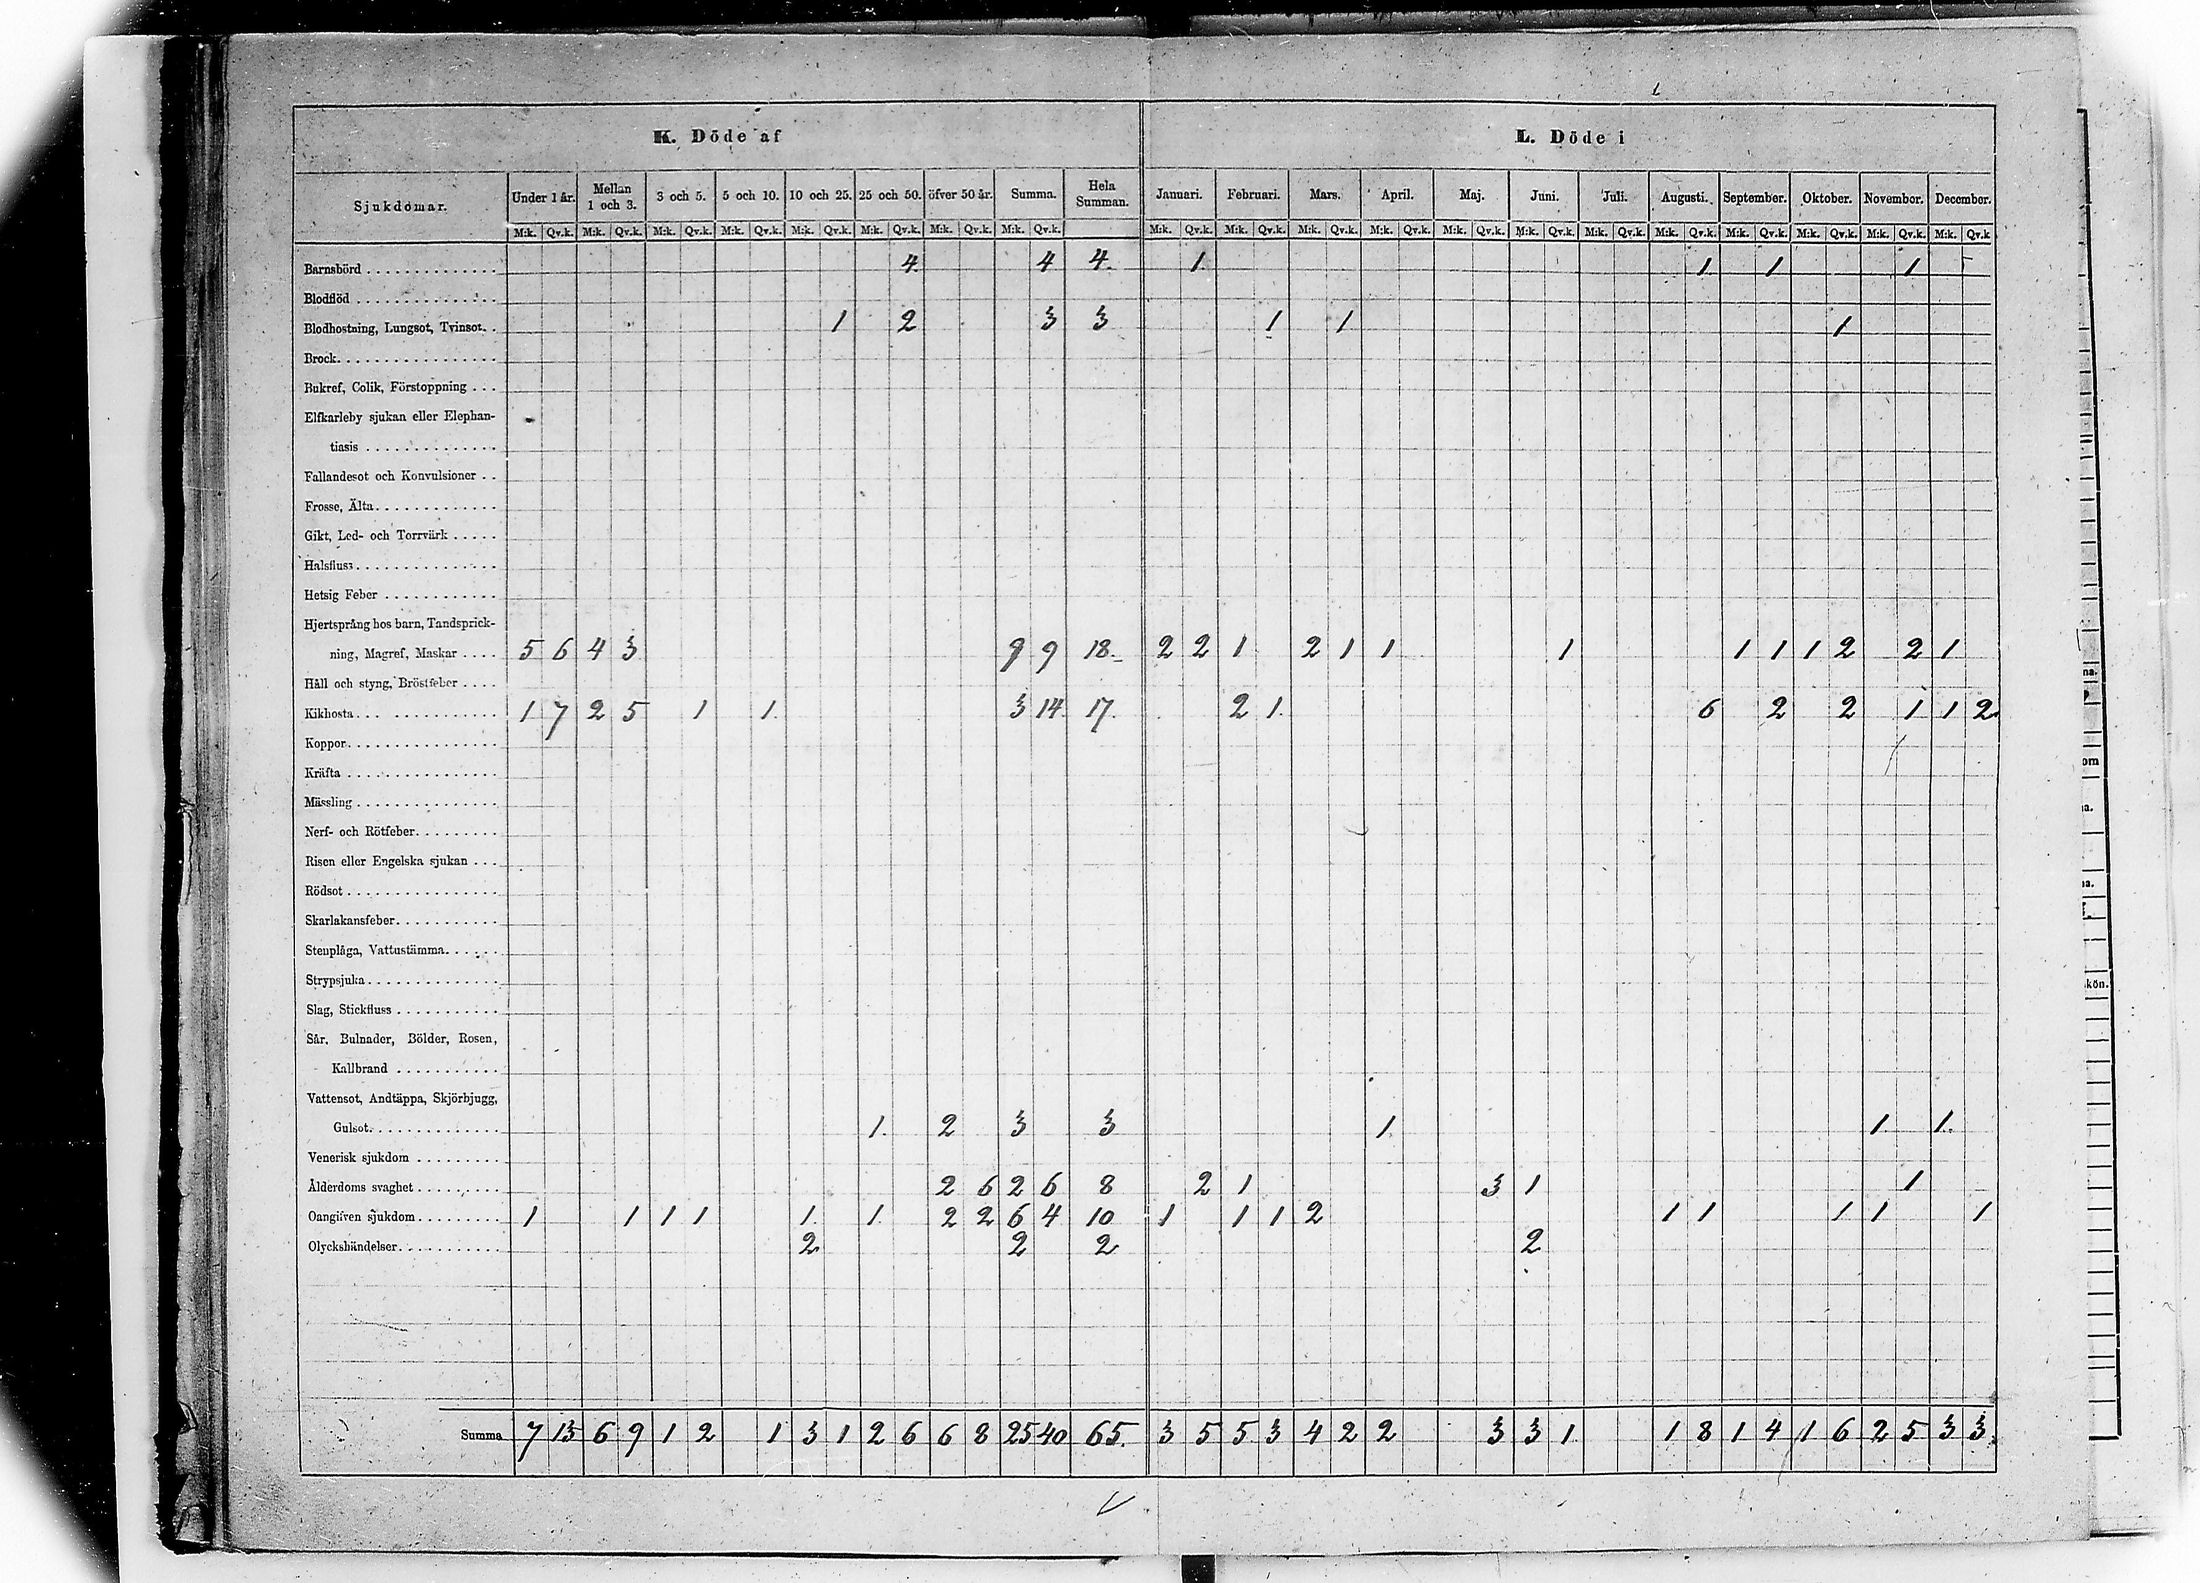 K. Döde af L. Döde i
Sjukdomar. Under 1 år. Mellan 1 och 3. 3 och 5. 5 och 10. 10 och 25. 25 och 50. öfver 50 år. Summa. Hela Summan. Januari. Februari. Mars. April. Maj. Juni. Juli. Augusti. September. Oktober. November. December.
M:k. Qv.k. M:k. Qv.k. M:k. Qv.k. M:k. Qv.k. M:k. Qv.k. M:k. Qv.k. M:k. Qv.k. M:k. Qv.k. M:k. Qv.k. M:k. Qv.k. M:k. Qv.k. M:k. Qv.k. M:k. Qv.k. M:k. Qv.k. M:k. Qv.k. M:k. Qv.k. M:k. Qv.k. M:k. Qv.k. M:k. Qv.k. M:k. Qv.k
Barnsbörd 4. 4 4. 1. 1. 1 1
Blodflöd
Blodhostning, Lungsot, Tvinsot. 1 2 3 3 1 1 1
Brock
Bukref, Colik, Förstoppning
Elfkarleby sjukan eller Elephan-
tiasis
Fallandesot och Konvulsioner
Frosse, Älta
Gikt, Led- och Torrvärk
Halsfluss
Hetsig Feber
Hjertsprång hos barn, Tandsprick-
ning, Magref, Maskar 5 6 4 3 9 9 18. 2 2 1 2 1 1 1 1 1 1 2 2 1
Håll och styng, Bröstfeber
Kikhosta 1 7 2 5 1 1. 3 14. 17. 2 1. 6 2 2 1 1 2.
Koppor
Kräfta
Mässling
Nerf- och Rötfeber
Risen eller Engelska sjukan
Rödsot
Skarlakansfeber
Stenplåga, Vattustämma
Strypsjuka
Slag, Stickfluss
Sår, Bulnader, Bölder, Rosen,
Kallbrand
Vattensot, Andtäppa, Skjörbjugg,
Gulsot. 1. 2 3 3 1. 1. 1.
Venerisk sjukdom
Ålderdoms svaghet 2 6 2 6 8 2 1 3 1 1
Oangifven sjukdom 1 1 1 1 1. 1. 2 2 6 4 10 1 1 1 2 1 1 1 1 1
Olyckshändelser 2 2 2 2
Summa 7 13 6 9 1 2 1 3 1 2 6 6 8 25 40 65. 3 5 5 3 4 2 2 3 3 1 1 8 1 4 1 6 2 5 3 3.